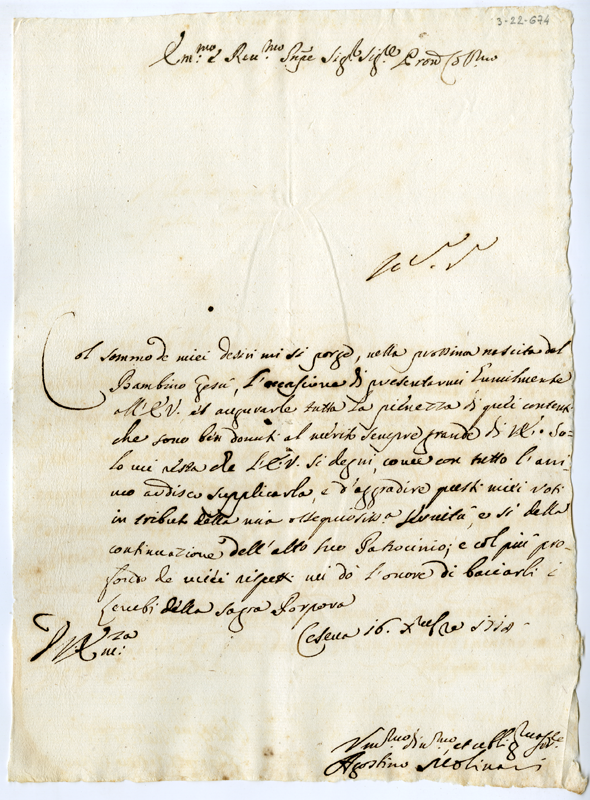 3-22-674
Em.mo e Rev.mo Pnpe Sig.r Sig.re Pron Col.mo
Col sommo de miei desiri mi si porge, nella prossima nascita del
Bambino Gesù, l'occasione di presentarmi humilmente
all'E.V. et augurarle tutta la pienezza di quei contenti
che sono ben dovuti al merito sempre grande di V.E. So-
lo mi resta che l'E.V. si degni, come con tutto l'ani-
mo ardisco supplicarla, e d'aggradire questi miei voti
in tributo della mia ossequiosiss.a servitù, e si della
continuazione dell'alto suo Patrocinio; e col più pro-
fondo de miei rispetti mi dò l'onore di bacciarli i
lembi della sagra Porpora
Cesena 16. Xbre 1718
Agostino Molinari